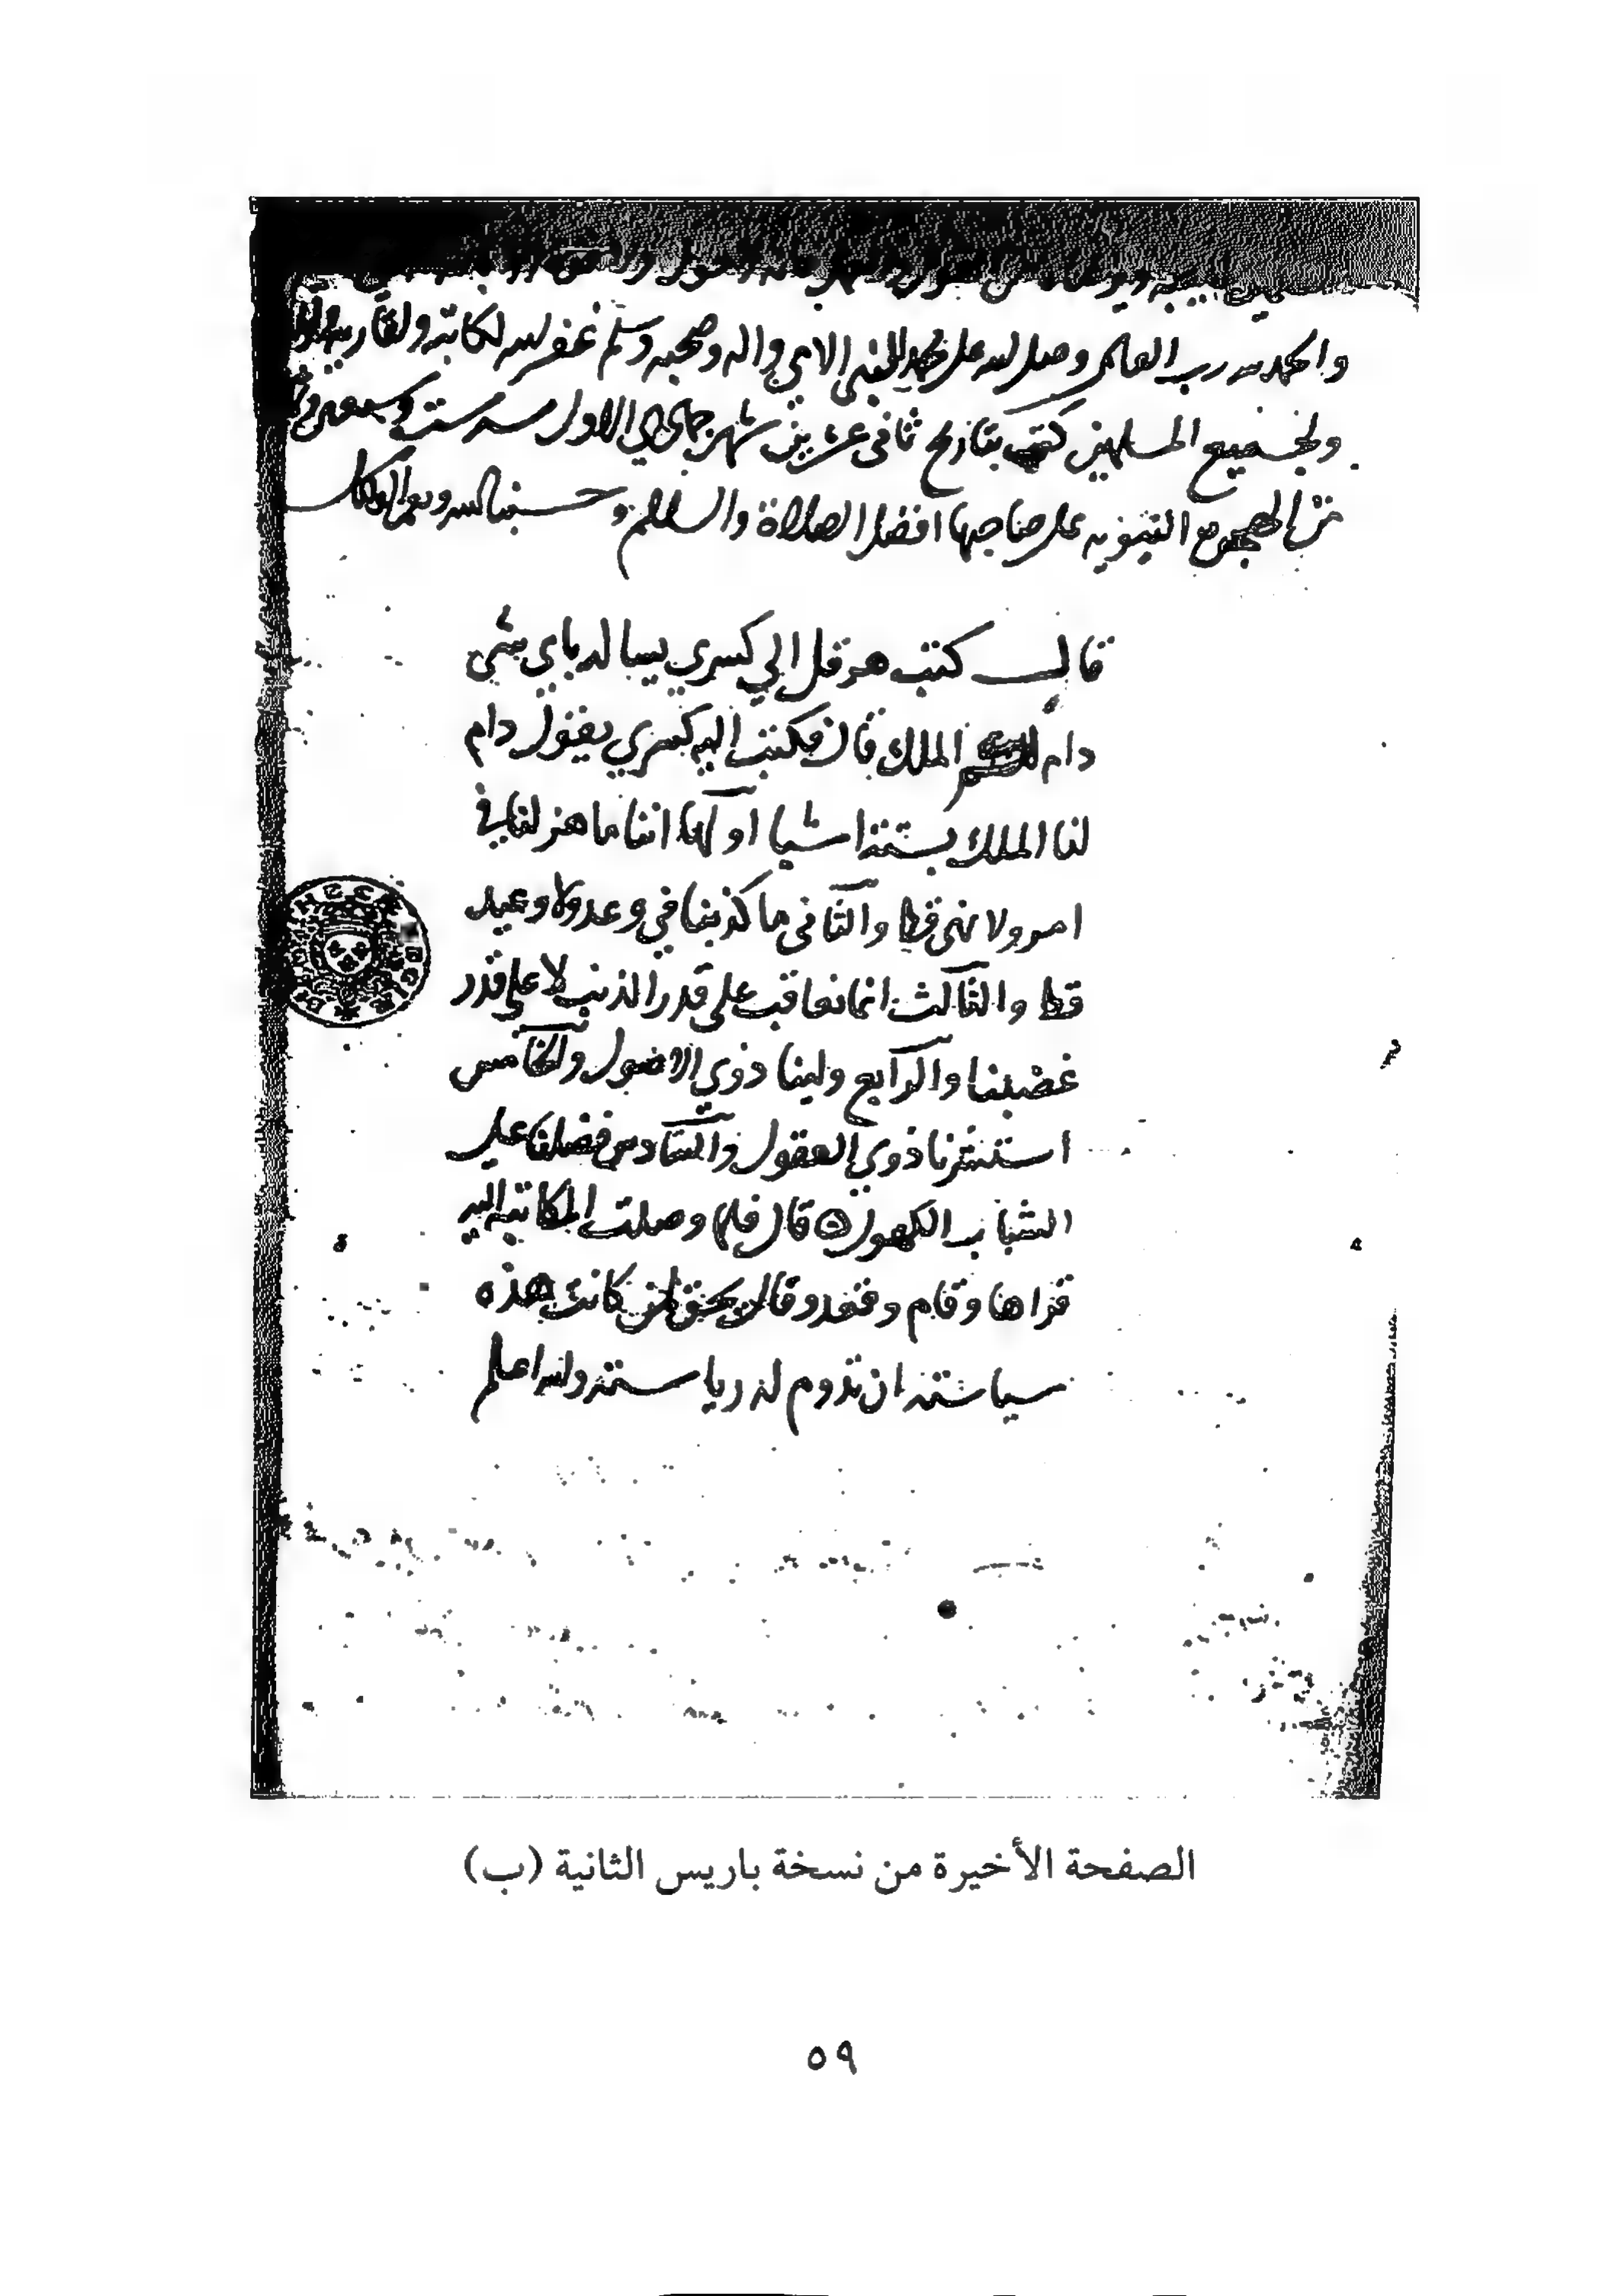 والحمد لله رب العالمين وصلى الله على محمد النبي الامي واله وصحبه وسلم غفر الله لكاتبه ولقاريه
ولجميع المسلمين كتب بتاريخ ثاني عشرين شهر جمادي الاول سنه ست وسبعين
من الهجره النبويه على صاحبها افضل الصلاة والسلام وحسبنا الله ونعم الوكيل
قال كتب هرقل الي كسري يساله باي شي
دام الملك قال فكتب اليه كسري يقول دام
لنا الملك بستة اشيا اولها اننا ما هزلنا في
امر ولا نهي قط والثاني ما كذبنا في وعد ولا وعيد
قط والثالث انما نعاقب علي قدر الذنب لا علي قدر
غضبنا والرابع ولينا ذوي الاصول والخامس
استشرنا ذوي العقول والسادس فضلنا علي
الشباب الكهول قال فلما وصلت المكاتبه اليه
قراها وقام وقعد وقال يحق لمن كانت هذه
سياسته ان تدوم له رياسته والله اعلم
الصفحة الأخيرة من نسخة باريس الثانية (ب)
٥٩